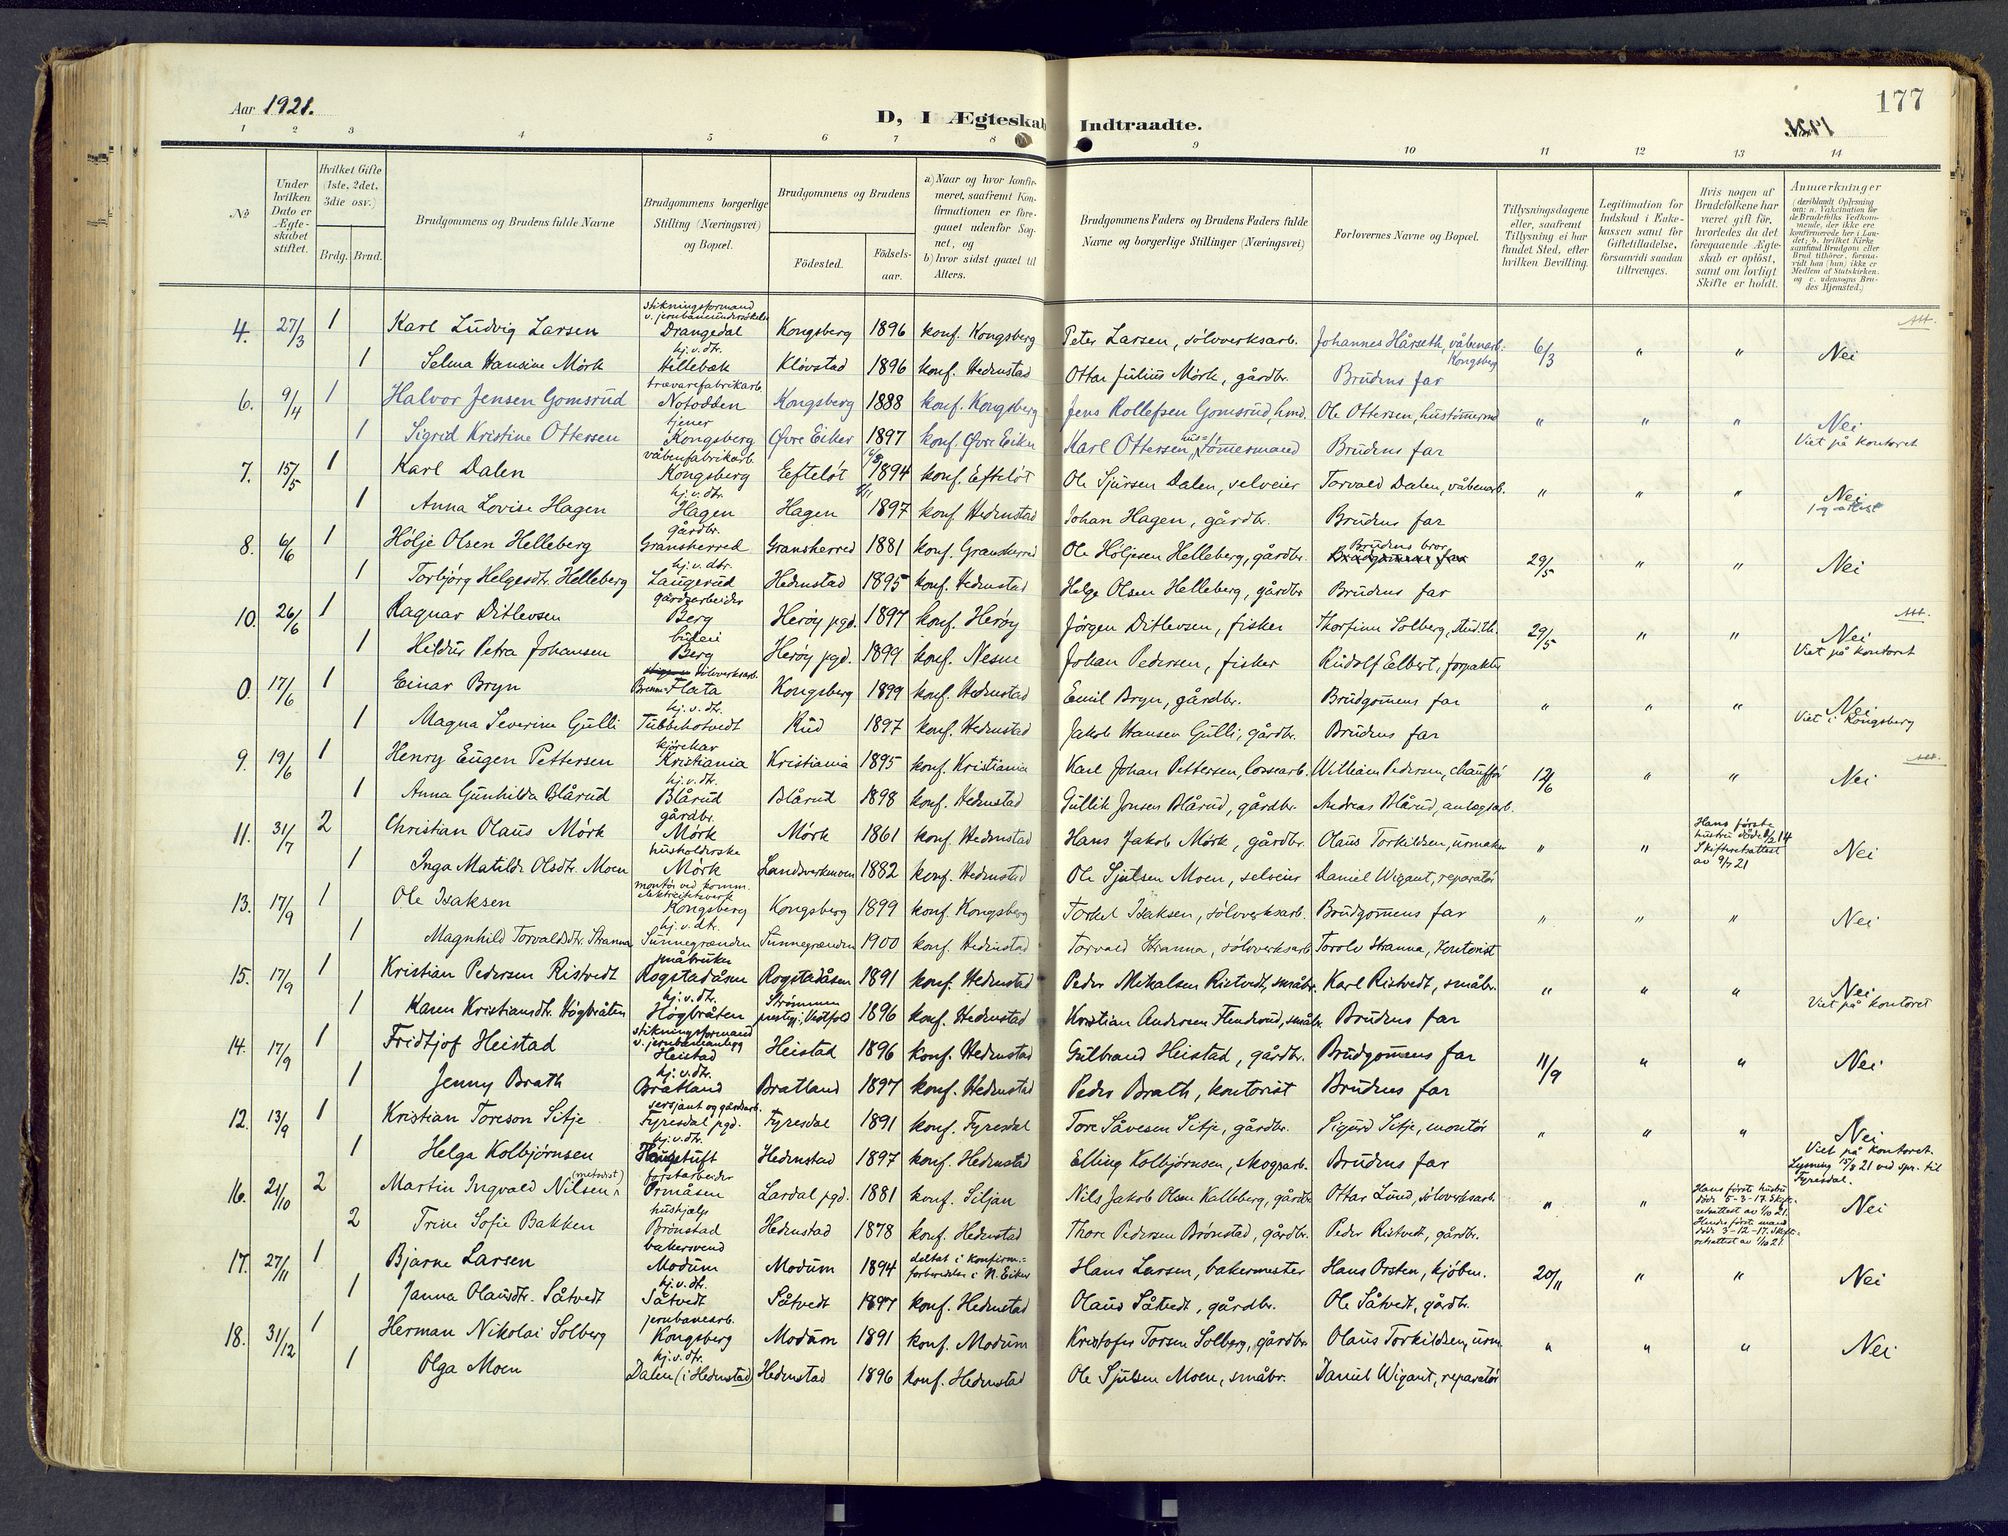 Aar 1921.
D, I Ægteskab Indtraadte.
177
1921.
1 2 3 4 5 6 7 8 9 10 11 12 13 14
No
Under hvilken Dato er Ægteskabet stiftet.
Hvilket Gifte (1ste, 2det, 3die osv.)
Brdg. Brud.
Brudgommens og Brudens fulde Navne
Brudgommens borgerlige Stilling (Næringsvei) og Bopæl.
Brudgommens og Brudens
Fødested.
Fødselsaar.
a) Naar og hvor konfirmeret, saafremt Konfirmationen er foregaaet udenfor Sognet, og
b) hvor sidst gaaet til Alters.
Brudgommens Faders og Brudens Faders fulde Navne og borgerlige Stillinger (Næringsvei)
Forlovernes Navne og Bopæl.
Tillysningsdagene eller, saafremt Tillysning ei har fundet Sted, efter hvilken Bevilling.
Legitimation for Indskud i Enkekassen samt for Giftetilladelse, forsaavidt saadan tiltrænges.
Hvis nogen af Brudefolkene har været gift før, hvorledes da det foregaaende Ægteskab er opløst, samt om lovligt Skifte er holdt.
Anmærkninger
(deriblandt Oplysning om: a. Vakcination for de Brudefolks Vedkommende, der ikke ere konfirmerede her i Landet; b. hvilket Kirkesamfund Brudgom eller Brud tilhører, forsaavidt han (hun) ikke er Medlem af Statskirken, og c. udensogns Brudes Hjemsted.)
4. 27/3 1 Karl Ludvig Larsen stikningsformand v. jernbaneundersøkelse Drangedal Kongsberg 1896 konf. Kongsberg Peter Larsen, sølvverksarb. Johannes Hårseth, våbenarb. Kongsberg 6/3 " " Nei Att.
1 Selma Hansine Mørk hj.v.dtr. Hillebæk Kløvstad 1896 konf. Hedenstad Ottar Julius Mørk, gårdbr. Brudens far
6. 9/4 1 Halvor Jensen Gomsrud trævarefabrikarb. Notodden Kongsberg 1888 konf. Kongsberg Jens Rollefsen Gomsrud, hmd. Ole Ottersen, hustømermd " " " Nei Viet på kontoret
1 Sigrid Kristine Ottersen tjener Kongsberg Øvre Eiker 1897 konf. Øvre Eiker Karl Ottersen, hustømermand Brudens far
7. 15/5 1 Karl Dalen våbenfabrikarb. Kongsberg Efteløt 1894 konf. Efteløt Ole Sjursen Dalen, selveier Torvald Dalen, våbenarb. " " " Nei
1 Anna Lovise Hagen hj.v.dtr. Hagen Hagen 1897 konf. Hedenstad Johan Hagen, gårdbr. Brudens far
8. 6/6 1 Hølje Olsen Helleberg gårdbr. Gransherred Gransherred 1881 konf. Gransherred Ole Høljesen Helleberg, gårdbr. Brudens bror Brudgomens far 29/5 " " Nei
1 Torbjørg Helgesdtr. Helleberg hj.v.dtr. Laugerud Hedenstad 1895 konf. Hedenstad Helge Olsen Helleberg, gårdbr Brudens far
10. 26/6 1 Ragnar Ditlevsen gårdsarbeider Berg Herøy pgd. 1897 konf. Herøy Jørgen Ditlevsen, fisker Thorfinn Solberg, stud. th. 29/5 " " Nei Viet på kontoret Att.
1 Heldur Petra Johansen budeie Berg Herøy pgd. 1899 konf. Nesne Johan Pedersen, fisker Rudolf Elbert, forpakter
0. 17/6 1 Einar Bryn sølvverksarb. Flata Kongsberg 1899 konf. Hedenstad Emil Bryn, gårdbr. Brudgomens far " " " Nei Viet i Kongsberg
1 Magna Severine Gulli hj.v.dtr. Tubbehotvedt Rud 1897 konf. Hedenstad Jakob Hansen Gulli, gårdbr. Brudens far
9. 19/6 1 Henry Eugen Pettersen kjørekar Kristiania Kristiania 1895 konf. Kristiania Karl Johan Pettersen, lossearb. William Pedersen, chauffør 12/6 " " Nei Att.
1 Anna Gunhilda Blårud hj.v.dtr. Blårud Blårud 1898 konf. Hedenstad Gullik Jensen Blårud, gårdbr. Andreas Blårud, anlægsarb.
11. 31/7 2 Christian Olaus Mørk gårdbr. Mørk Mørk 1861 konf. Hedenstad Hans Jakob Mørk, gårdbr. Olaus Torkildsen, urmaker " " Hans første hustru døde 8/2 14 Skifteretsattest av 9/7 21 Nei
1 Inga Matilde Olsdtr. Moen husholderske Mørk Landsverkmoen 1882 konf. Hedenstad Ole Sjulsen Moen, selveier Daniel Wigant, reparatør
13. 17/9 1 Ole Isaksen montør ved komm. elektricitetsverk Kongsberg Kongsberg 1899 konf. Kongsberg Torkel Isaksen, sølvverksarb. Brudgomens far " " " Nei
1 Magnhild Torvaldsdtr. Stranna hj.v.dtr. Sunnegrænden Sunnegrænden 1900 konf. Hedenstad Torvald Stranna, sølvverksarb. Torolv Stranna, kontorist
15. 17/9 1 Kristian Pedersen Ristvedt småbruker Rogstadåsen Rogstadåsen 1891 konf. Hedenstad Peder Mikalsen Ristvedt, småbr. Karl Ristvedt, småbr. " " " Nei Viet på kontoret
1 Karen Kristiansdtr. Høgbråten hj.v.dtr. Høgbråten Strømmen prestegj. i Vestfold 1896 konf. Hedenstad Kristian Andersen Flendrud, småbr. Brudens far
14. 17/9 1 Fridtjof Heistad stikningsformand v. jernbaneanlegg Heistad Heistad 1896 konf. Hedenstad Gulbrand Heistad, gårdbr. Brudgomens far 11/9 " " Nei
1 Jenny Brath hj.v.dtr. Bratland Bratland 1897 konf. Hedenstad Peder Brath, kontorist Brudens far
12. 13/9 1 Kristian Toreson Sitje sersjant og gårdsarb. Fyresdal pgd. Fyresdal 1891 konf. Fyresdal Tore Såvesen Sitje, gårdbr. Sigurd Sitje, montør " " " Nei Viet på kontoret. Lysning 15/8 21 ved spr. til Fyresdal.
1 Helga Kolbjørnsen hj.v.dtr. Haugetuft Hedenstad 1897 konf. Hedenstad Elling Kolbjørnsen, skogsarb. Brudens far
16. 21/10 2 Martin Ingvald Nilsen (metodist) forstarbeider Ormåsen Lardal pgd. 1881 konf. Siljan Nils Jakob Olsen Kalleberg, gårdbr Ottar Lund, sølvverksarb. " " Hans første hustru døde 5-3-17. Skifteretsattest av 1/10 21. Hendes første mand døde 3-12-17. Skifteretsattest av 1/10 21 Nei
2 Trine Sofie Bakken hushjelp Brønstad Hedenstad 1878 konf. Hedenstad Thore Pedersen Brønstad, gårdbr. Peder Ristvedt, gårdbr.
17. 27/11 1 Bjarne Larsen bakersvend Modum Modum 1894 deltat i konfirm.-forberedelsen i N. Eiker Hans Larsen, bakermester Hans Orsten, kjøbm. 20/11 " " Nei
1 Janna Olausdtr. Såtvedt hj.v.dtr. Såtvedt Såtvedt 1897 konf. Hedenstad Olaus Såtvedt, gårdbr. Ole Såtvedt, gårdbr.
18. 31/12 1 Herman Nikolai Solberg jernbanearb. Kongsberg Modum 1891 konf. Modum Kristofer Torsen Solberg, gårdbr Olaus Torkildsen, urm. " " " Nei
1 Olga Moen hj.v.dtr. Dalen (i Hedenstad) Hedenstad 1896 konf. Hedenstad Ole Sjulsen Moen, småbr. Daniel Wigant, reparatør